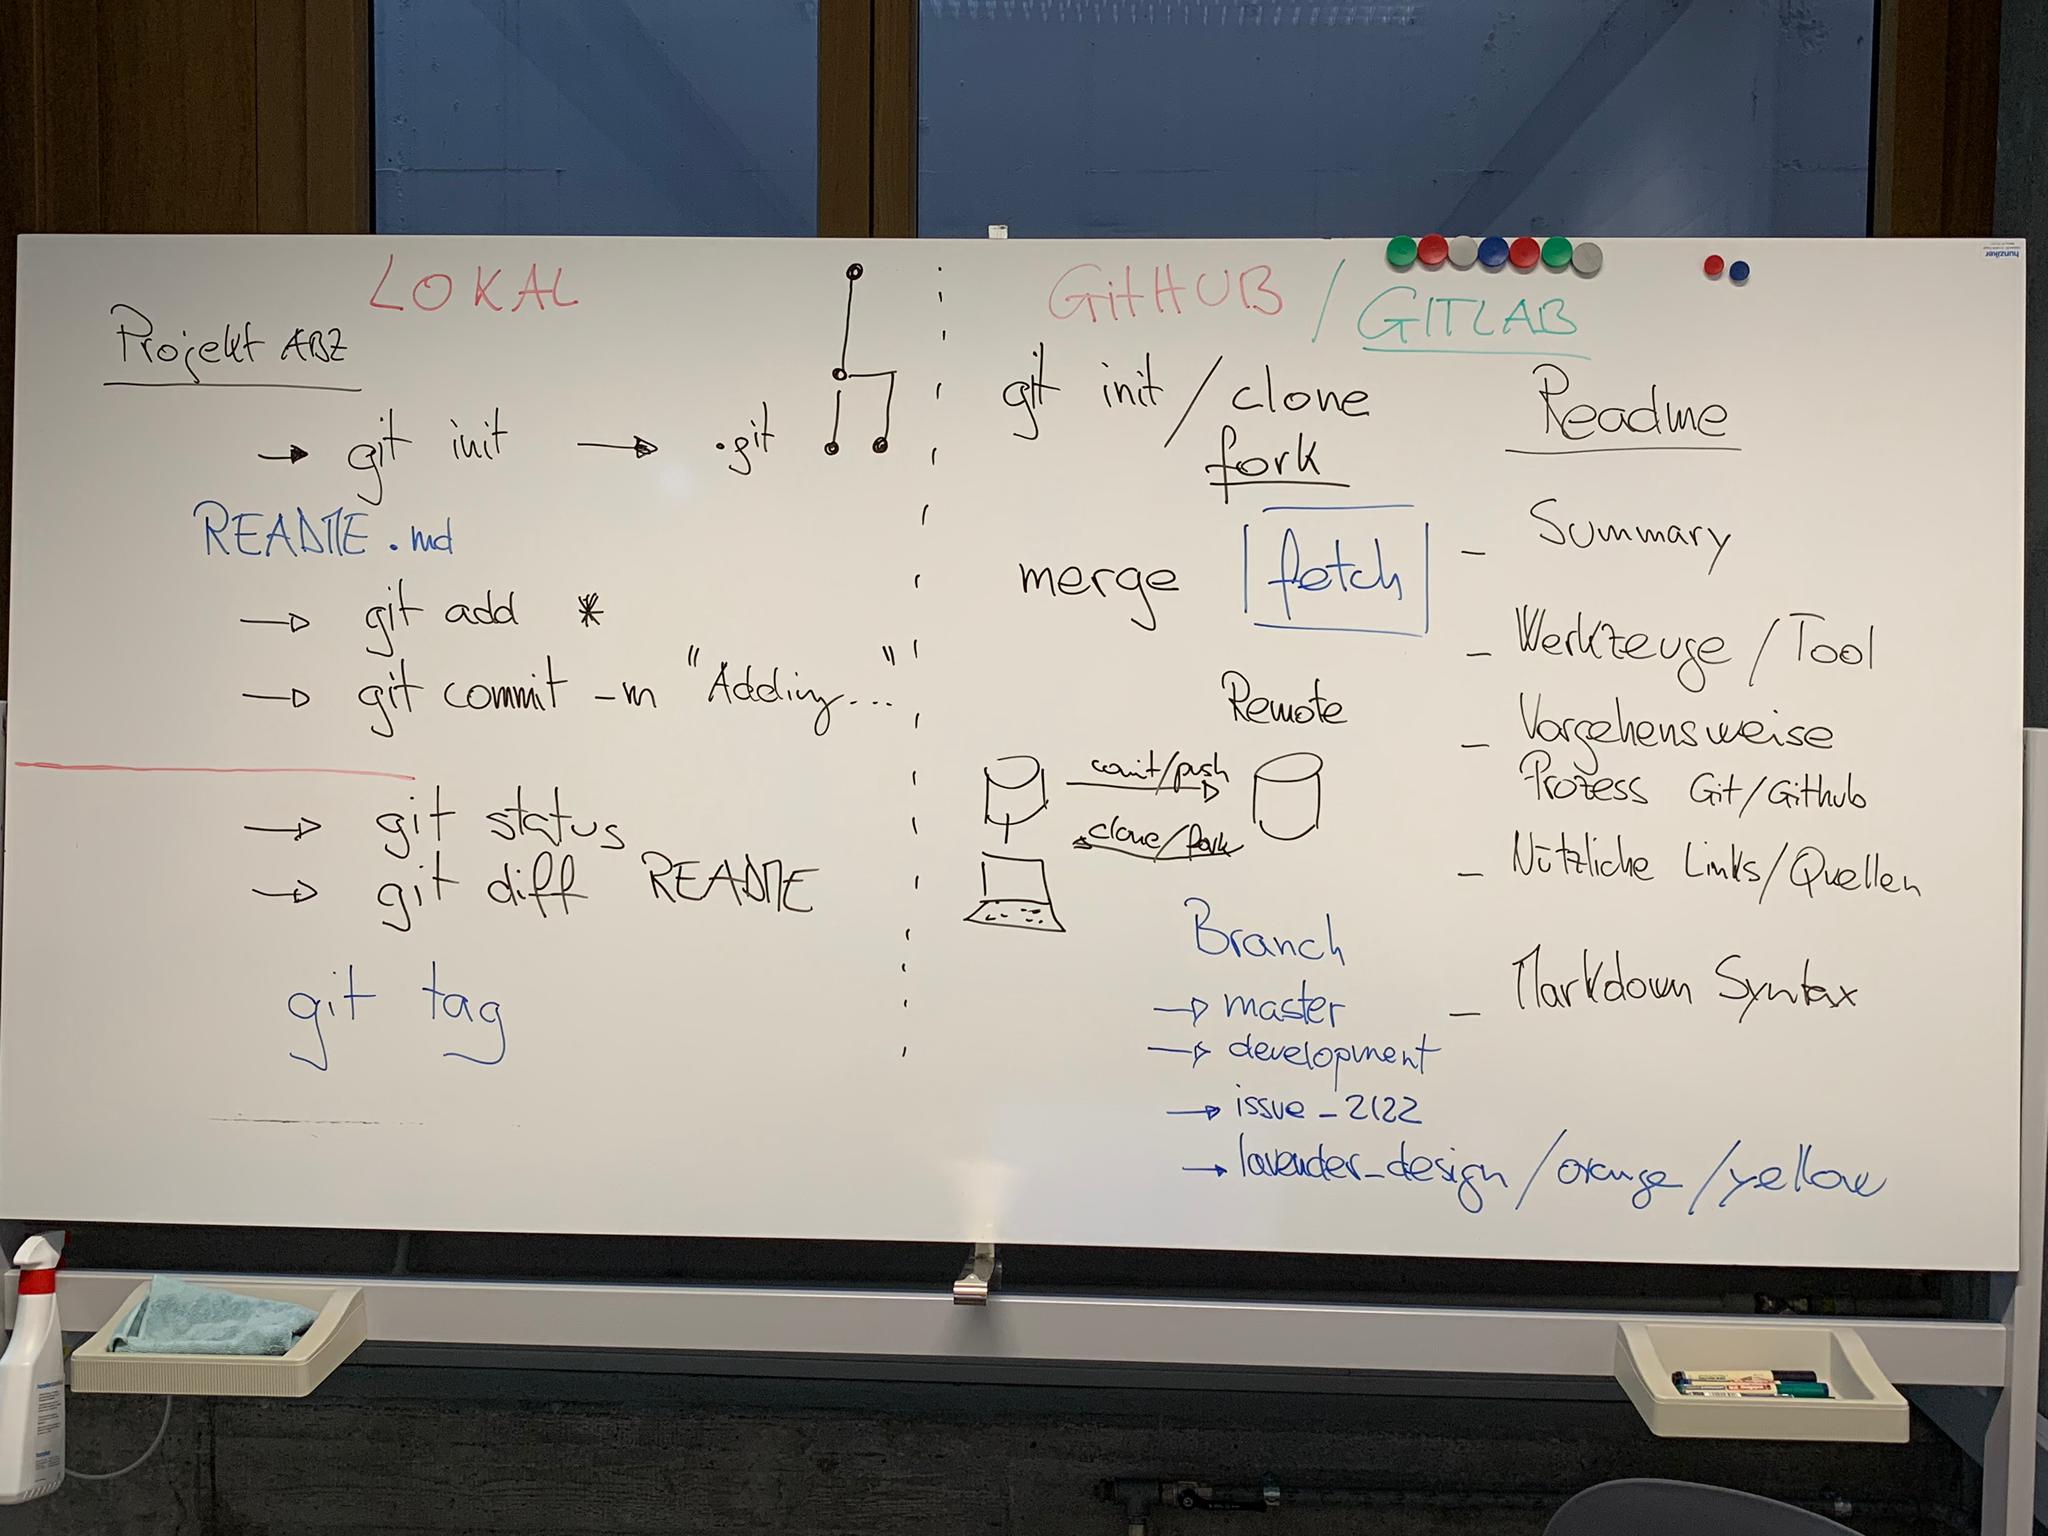 LOKAL
Projekt ABZ
→ git init → .git
README.md
→ git add *
→ git commit -m "Adding..."
→ git status
→ git diff README
git tag
GitHUB / GITLAB
git init / clone
fork
merge | fetch |
Remote
comit/push
clone/fork
Branch
→ master
→ development
→ issue_2122
→ lavender_design / orange / yellow
Readme
- Summary
- Werkzeuge / Tool
- Vorgehensweise
Prozess Git/Github
- Nützliche Links/Quellen
- Markdown Syntax
hunziker